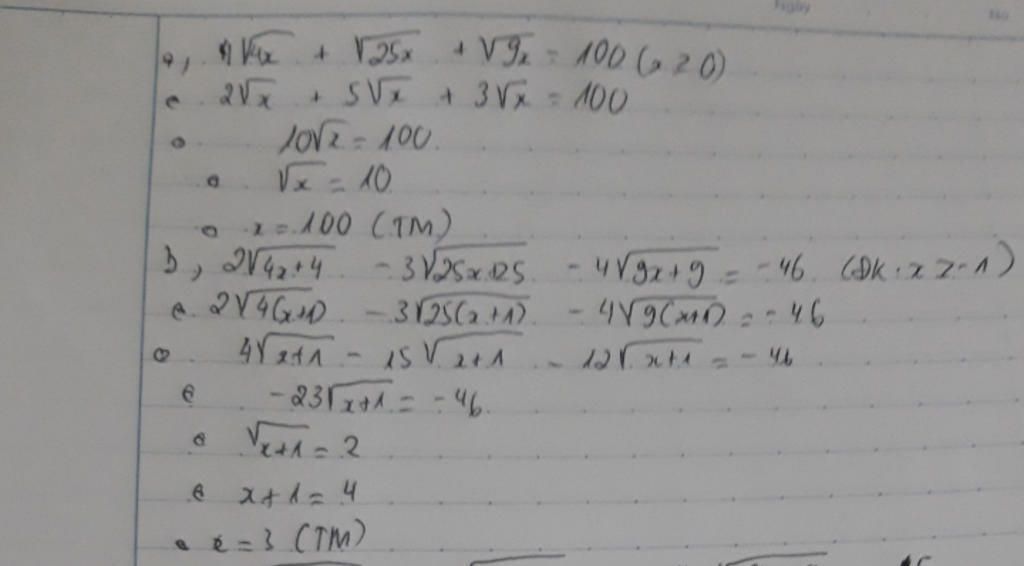 Ngày No
a, √4x + √25x + √9x = 100 (x ≥ 0)
⇔ 2√x + 5√x + 3√x = 100
⇔ 10√x = 100
⇔ √x = 10
⇔ x = 100 (TM)
b, 2√4x+4 - 3√25x+25 - 4√9x+9 = -46 (ĐK: x ≥ -1)
⇔ 2√4(x+1) - 3√25(x+1) - 4√9(x+1) = -46
⇔ 4√x+1 - 15√x+1 - 12√x+1 = -46
⇔ -23√x+1 = -46
⇔ √x+1 = 2
⇔ x+1 = 4
⇔ x = 3 (TM)